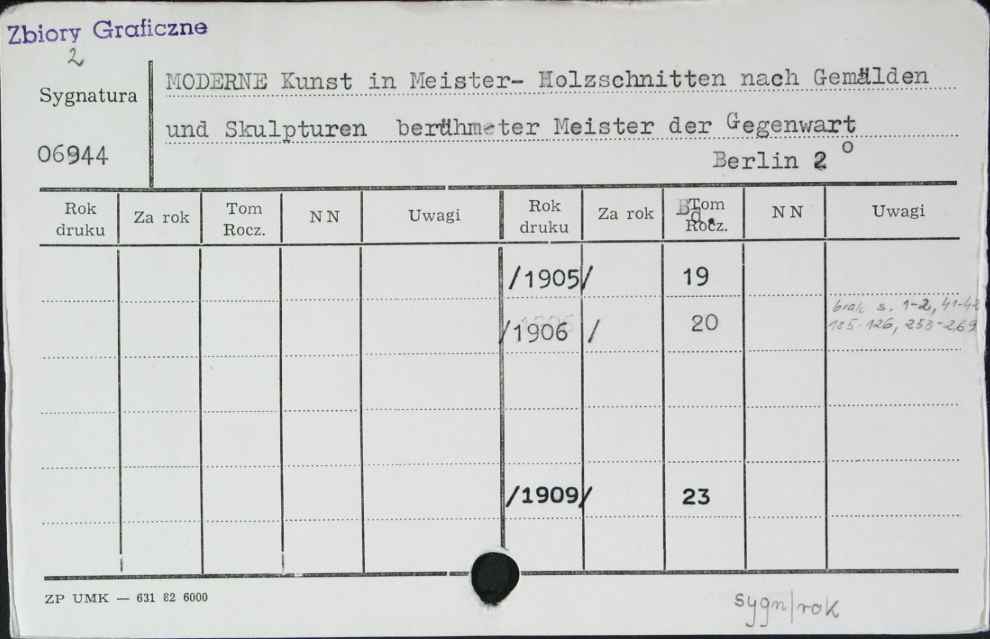 Zbiory Graficzne
2
Sygnatura
06944
MODERNE Kunst in Meister- Holzschnitten nach Gemälden
und Skulpturen berühmter Meister der Gegenwart
Berlin 2°
Rok druku Za rok Tom Rocz. NN Uwagi Rok druku Za rok Bd. Tom Rocz. NN Uwagi
/1905/ 19
/1906 / 20 brak s. 1-2, 41-42
125-126, 253-269
/1909/ 23
ZP UMK — 631 82 6000
sygn/rok